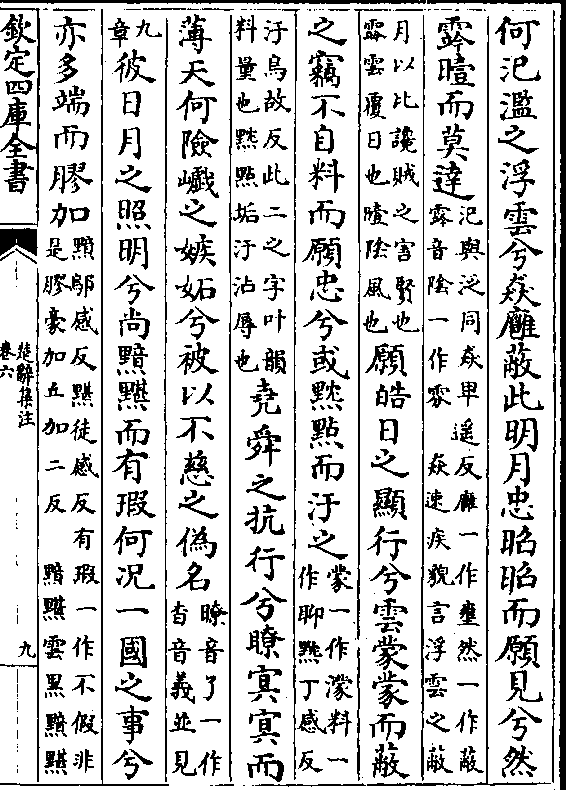 何氾濫之浮雲兮猋廱蔽此明月忠昭昭而願見兮然
霠曀而莫達
氾與泛同猋卑遥反廱一作壅然一作蔽
霠音陰一作雰 猋速疾貌言浮雲之蔽
月以比讒賊之害賢也
霠雲覆日也曀陰風也
願皓日之顯行兮雲蒙蒙而蔽
之竊不自料而願忠兮或黕點而汙之
蒙一作濛料一
作聊黕丁感反
汙烏故反此二之字叶韻
料量也黕點垢汙沾辱也
堯舜之抗行兮瞭冥冥而
薄天何險巇之嫉妬兮被以不慈之偽名
瞭音了一作
杳音義並見
九
章
彼日月之照明兮尚黯黮而有瑕何况一國之事兮
亦多端而膠加
黯鄔感反黮徒感反有瑕一作不假非
是膠豪加丘加二反 黯黮雲黒黯黮
欽定四庫全書
楚辭集注
卷六
九